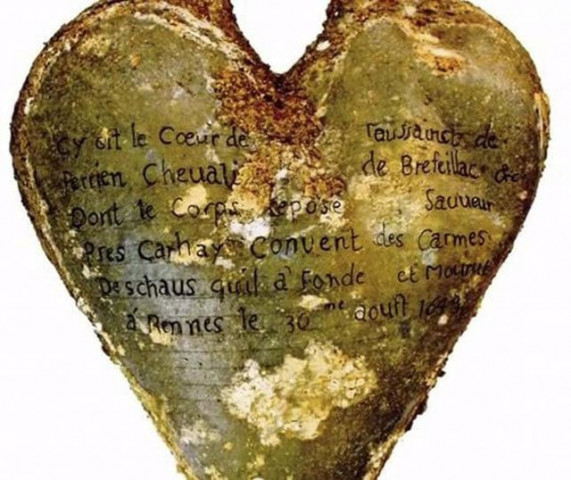 Cy git le Coeur de Toussainct de
Perrien Chevali de Brefeillac
Dont le Corps Repose Sauveur
Pres Carhay Convent des Carmes
Deschaus quil à Fondé et Mourut
à Rennes le 30 me aoust